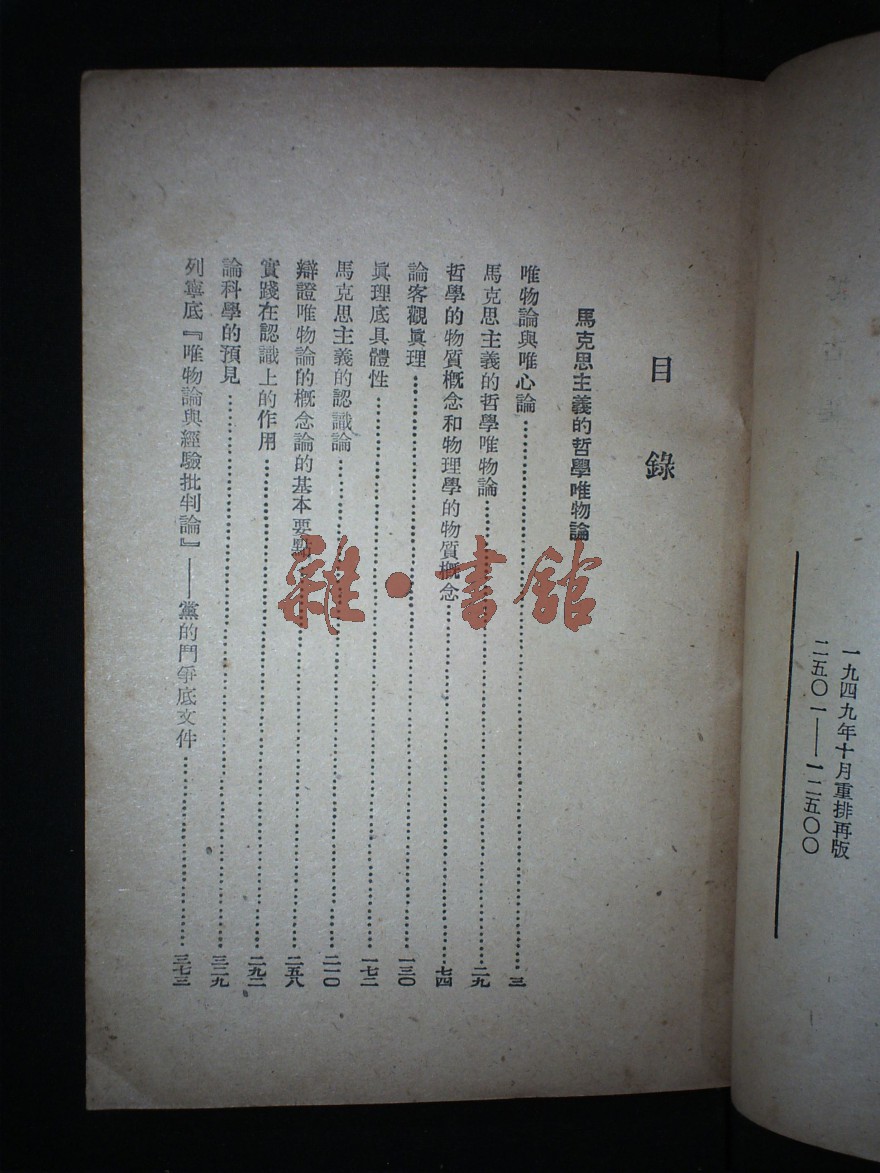 一九四九年十月重排再版
二五〇一——一二五〇〇
目錄
馬克思主義的哲學唯物論
唯物論與唯心論……三
馬克思主義的哲學唯物論……二九
哲學的物質概念和物理學的物質概念……七四
論客觀眞理……一三〇
眞理底具體性……一七二
馬克思主義的認識論……二一〇
辯證唯物論的概念論的基本要點……二五八
實踐在認識上的作用……二九二
論科學的預見……三二九
列寧底『唯物論與經驗批判論』——黨的鬥爭底文件……三七三
雜·書館